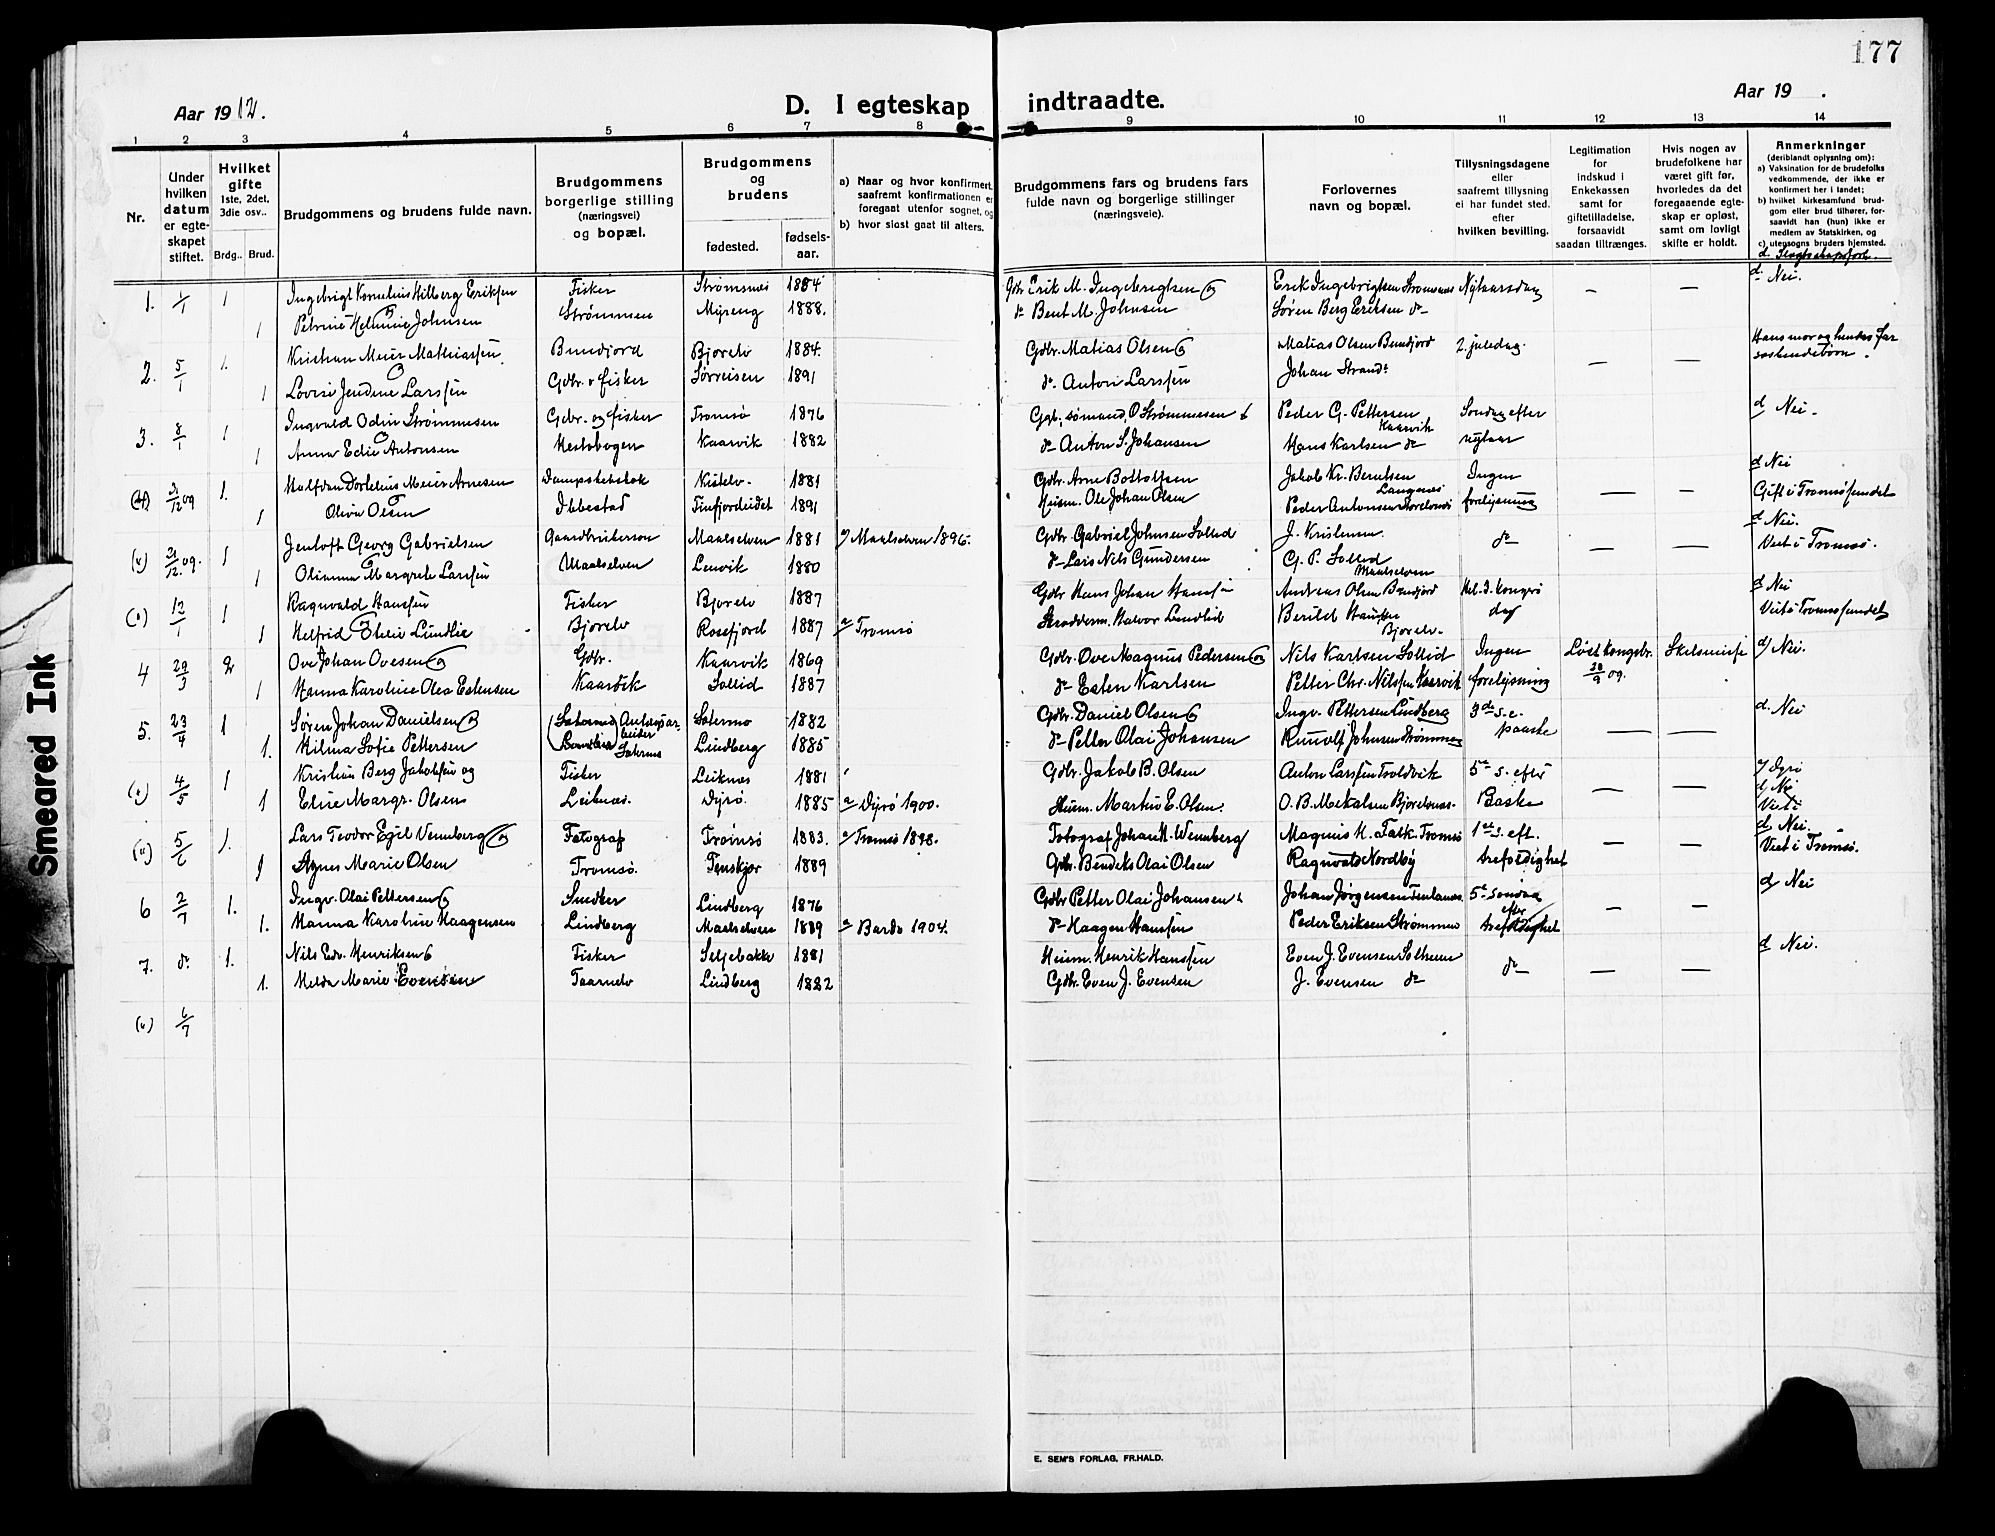 177
Aar 1912.
D. I egteskap indtraadte.
Aar 19 .
1 2 3 4 5 6 7 8 9 10 11 12 13 14
Nr.
Under hvilken datum er egteskapet stiftet.
Hvilket gifte 1ste, 2det, 3die osv..
Brdg.. Brud.
Brudgommens og brudens fulde navn.
Brudgommens borgerlige stilling (næringsvei) og bopæl.
Brudgommens og brudens
fødested. fødselsaar.
a) Naar og hvor konfirmert, saafremt konfirmationen er foregaat utenfor sognet, og
b) hvor sidst gaat til alters.
Brudgommens fars og brudens fars fulde navn og borgerlige stillinger (næringsveie).
Forlovernes navn og bopæl.
Tillysningsdagene eller saafremt tillysning ei har fundet sted. efter hvilken bevilling.
Legitimation for indskud i Enkekassen samt for giftetilladelse, forsaavidt saadan tiltrænges.
Hvis nogen av brudefolkene har været gift før, hvorledes da det foregaaende egteskap er opløst, samt om lovligt skifte er holdt.
Anmerkninger
(deriblandt oplysning om):
a) Vaksination for de brudefolks vedkommende, der ikke er konfirmert her i landet;
b) hvilket kirkesamfund brudgom eller brud tilhører, forsaavidt han (hun) ikke er medlem av Statskirken, og
c) utensogns bruders hjemsted.
1. 1/1 1 Ingebrigt Kornelius Hilberg Eriksen Fisker Strømsnes 1884 Gdbr Erik M. Ingebrigtsen og Erik Ingebrigtsen Strømsnes Nytaarsdag — — d Nei.
1 Petrine Helmine Johnsen Strømmen Myreng 1888. d° Bent M. Johnsen Søren Berg Eriksen d°
2. 5/1 1. Kristian Meier Mathiassen Bundjord Bjorelv 1884. Gdbr. Matias Olsen og Matias Olsen Bundjord 2. juledag. — — Hans mor og hendes far søskendebørn.
1 Lovise Jendine Larssen Gdbr. & fisker Sørreisen 1891 d°. Anton Larssen Johan Strand
3. 8/1 1 Ingvald Odin Strømmesen Gdbr. og fisker Tromsø 1876 O. Strømmesen Peder G. Pettersen Søndag efter d Nei.
1 Anna Edie Antonsen Hestebogen Kaarvik 1882 d° Anton S. Johansen Kaarvik Hans Karlsen d° nytaar
31/12 09 1. Halfdan Dorthius Meier Arnesen 1881 Gdbr. Arne Bottolfsen Jakob Kr. Berntsen Ingen — — d Nei
1 Oline Olsen Ibbestad Finfjordeidet 1891 Husm. Ole Johan Olsen Peder Antonsen forelysning Gift i Tromsøsundet
21/12 09. 1 Jentoft Georg Gabrielsen Maalselven 1881 Maalselven 1896. Gdbr. Gabriel Johnsen Solled J. Kristensen. d° — — d Nei.
1 Olianna Margrete Larssen Maalselven Lenvik 1880 d° Lars Nils Gundersen G. P. Solled Maalselven Viet i Tromsø.
12/1 1 Ragnvald Hanssen Fisker Bjorelv 1887 Gdbr Hans Johan Hanssen Andreas Olsen Bundjord Hel. 3. konger d Nei
1 Helfrid Lindlie Bjorelv Rossfjord 1887 a Tromsø Skredderm. Halvor Lindlid Berild Hansen Bjorelv. dag Viet i Tromsøsundet
4 29/3 2 Ove Johan Ovesen og Gdbr. Kaarvik 1869 Gdbr. Ove Magnus Pedersen og Nils Karlsen Sollid Ingen Løst kongebr. Skilsmisse d) Nei.
1 Hanna Karoline Olea Estensen Kaarvik Sollid 1887 d° Esten Karlsen Petter Chr. Nilssen Kaarvik forelysning 09.
5. 23/4 1 Søren Johan Danielsen og Anlægsarbeider 1882 Gdbr. Daniel Olsen og Ingv. Pettersen Lindberg 3d s. e. d. Nei
1. Hilma Sofie Pettersen Lindberg 1885 d° Petter Olai Johansen Rudolf Johnsen Strømmen paaske — —
4/5 1 Kristian Berg Jakobsen og Fisker Leiknes 1881 Gdbr. Jakob B. Olsen Anton Larssen 5te s. efter Dyrø d) Nei
1 Elise Margr. Olsen Leiknes. Dyrø. 1885 a Dyrø 1900. Husm. Martin E. Olsen. O. B. Mikalsen Paske — — Viet i
5/6 1. Lars Teodor Egil Vennberg og Fotograf Tromsø 1883. a Tromsø 1898. Fotograf Johan H. Wennberg Magnus H. Falk Tromsø 1ste s. eft. d. Nei.
1 Agnes Marie Olsen Tromsø. Tenskjær 1889 Gdbr. Bendiks Olai Olsen Ragnvald Nordby trefoldighet — — Viet i Tromsø.
6 2/7 1. Ingv. Olai Pettersen og Snedker Lindberg 1876 Gdbr Petter Olai Johansen Johan Jørgensen 5te Søndag efter d) Nei
1. Hanna Karoline Haagensen Lindberg Maalselven 1889 a Bardo 1904. d° Haagen Hanssen Peder Eriksen Strømmen trefoldighet — —
7. d°. 1. Nils Edv. Henriksen og Fisker Seljebakke 1881 Husm. Henrik Hanssen Even J. Evensen Solheim d Nei.
1. Helda Marie Evensen Taarnelv Lindberg 1882 Gdbr. Even J. Evensen J. Evensen d° d° — —
6/7
E. SEM'S FORLAG, FR.HALD.
Smeared Ink